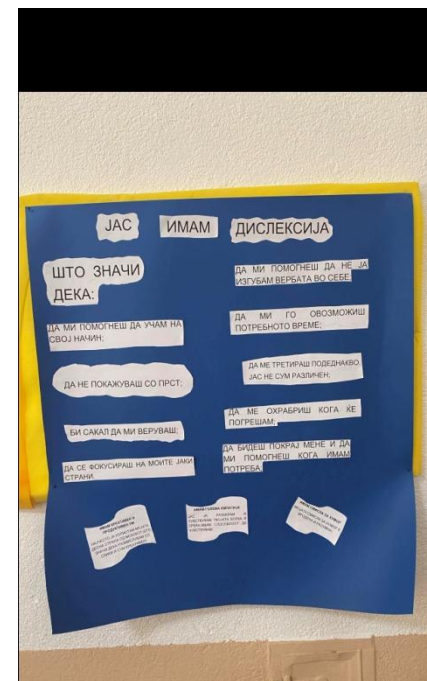 ЈАС ИМАМ ДИСЛЕКСИЈА
ШТО ЗНАЧИ
ДЕКА:
ДА МИ ПОМОГНЕШ ДА УЧАМ НА
СВОЈ НАЧИН;
ДА НЕ ПОКАЖУВАШ СО ПРСТ;
БИ САКАЛ ДА МИ ВЕРУВАШ;
ДА СЕ ФОКУСИРАШ НА МОИТЕ ЈАКИ
СТРАНИ
ДА МИ ПОМОГНЕШ ДА НЕ ЈА
ИЗГУБАМ ВЕРБАТА ВО СЕБЕ;
ДА МИ ГО ОВОЗМОЖИШ
ПОТРЕБНОТО ВРЕМЕ;
ДА МЕ ТРЕТИРАШ ПОДЕДНАКВО,
ЈАС НЕ СУМ РАЗЛИЧЕН;
ДА МЕ ОХРАБРИШ КОГА ЌЕ
ПОГРЕШАМ;
ДА БИДЕШ ПОКРАЈ МЕНЕ И ДА
МИ ПОМОГНЕШ КОГА ИМАМ
ПОТРЕБА;